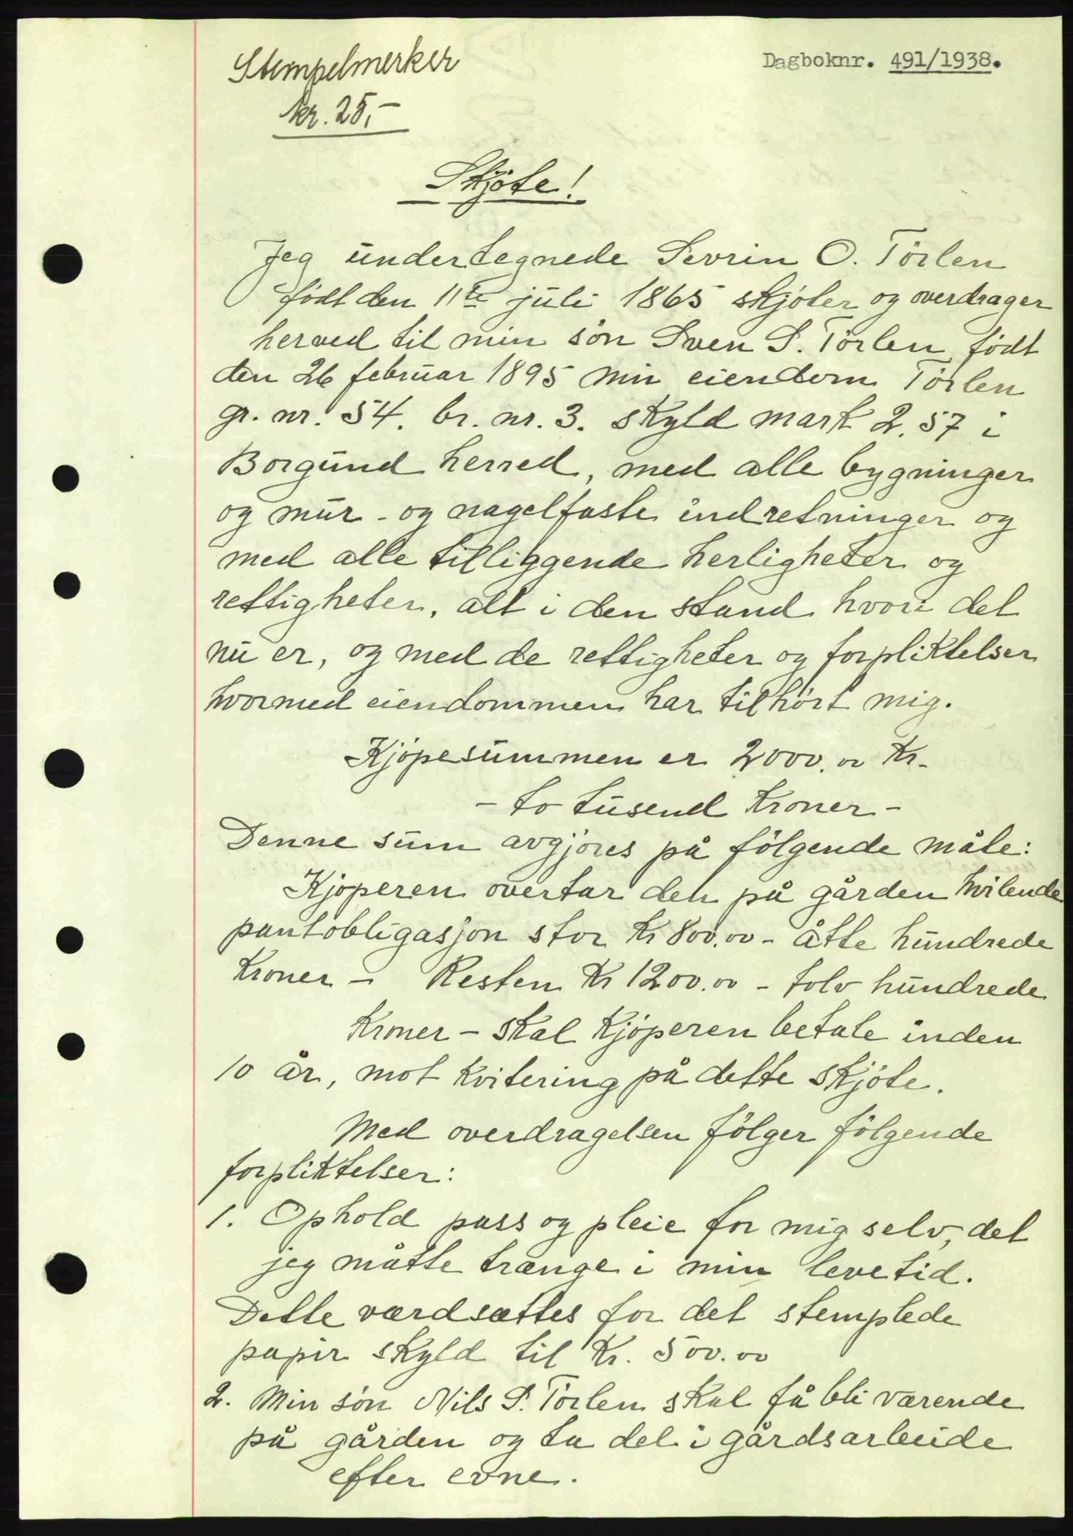 Stempelmerker
kr. 25,-
Dagboknr. 491/1938.
Skjöte!
Jeg undertegnede Sevrin O. Törlen
född den 11te juli 1865 skjöter og overdrager
herved til min sön Sven S. Törlen, född
den 26 februar 1895 min eiendom Törlen
gr. nr. 54. br. nr. 3. skyld mark 2.57 i
Borgund herred, med alle bygninger
og mur- og nagelfaste indretninger og
med alle tilliggende herligheter og
rettigheter, alt i den stand hvori det
nu er, og med de rettigheter og forpliktelser
hvormed eiendommen har tilhört mig.
Kjöpesummen er 2000.00 Kr.
- to tusend Kroner -
Denne sum avgjöres på fölgende måte:
Kjöperen overtar den på gården hvilende
pantobligasjon stor Kr 800.00 - åtte hundrede
Kroner - Resten Kr 1200.00 - tolv hundrede
Kroner - skal Kjöperen betale inden
10 år, mot kvitering på dette skjöte.
Med overdragelsen fölger fölgende
forpliktelser:
1. Ophold pass og pleie for mig selv, det
jeg måtte trænge i min levetid.
Dette værdsættes for det stemplede
papir skyld til Kr. 500.00
2. Min sön Nils S. Törlen skal få bli værende
på gården og ta del i gårdsarbeide
efter evne.